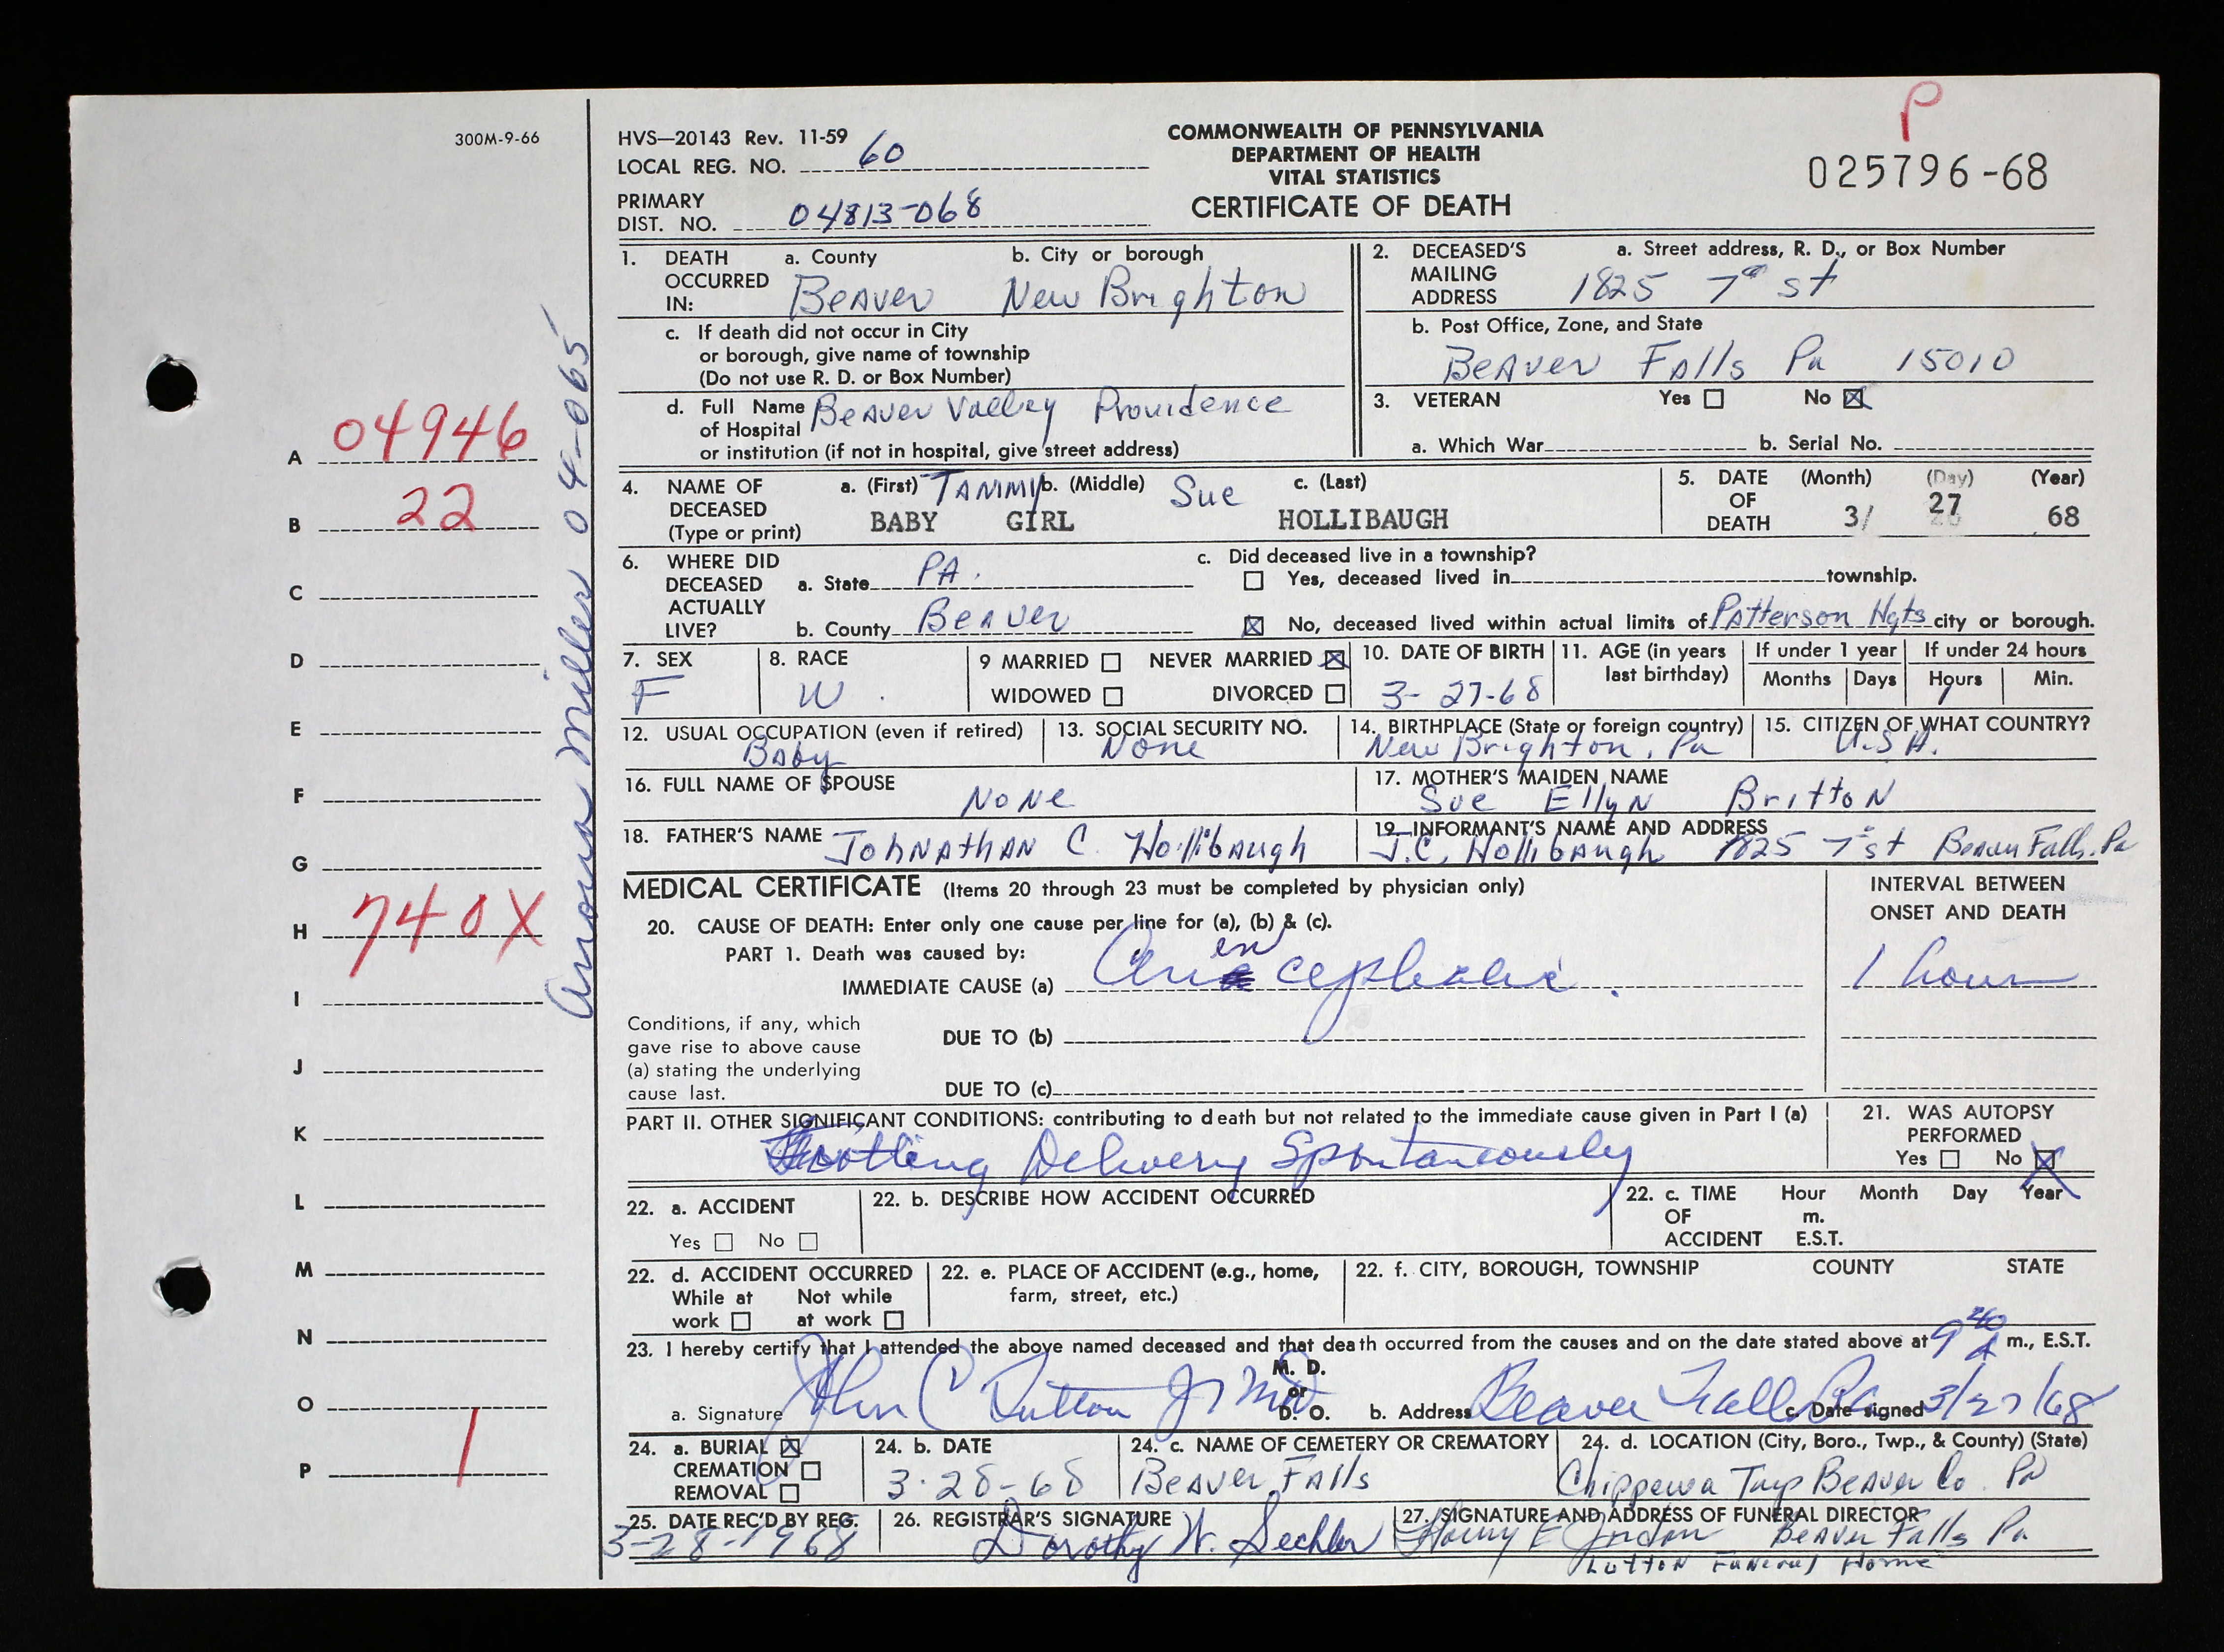 300M-9-66
HVS—20143 Rev. 11-59
LOCAL REG. NO. 60
PRIMARY
DIST. NO. 04813-068
COMMONWEALTH OF PENNSYLVANIA
DEPARTMENT OF HEALTH
VITAL STATISTICS
CERTIFICATE OF DEATH
P
025796-68
1. DEATH OCCURRED IN: a. County Beaver b. City or borough New Brighton
c. If death did not occur in City
or borough, give name of township
(Do not use R. D. or Box Number)
d. Full Name of Hospital Beaver Valley Providence
or institution (if not in hospital, give street address)
2. DECEASED'S MAILING ADDRESS a. Street address, R. D., or Box Number
1825 7th st
b. Post Office, Zone, and State
Beaver Falls Pa 15010
3. VETERAN Yes No X
a. Which War b. Serial No.
4. NAME OF DECEASED (Type or print) a. (First) Tammy b. (Middle) Sue c. (Last)
BABY GIRL HOLLIBAUGH
5. DATE OF DEATH (Month) (Day) (Year)
3/ 27 68
6. WHERE DID DECEASED ACTUALLY LIVE? a. State PA.
b. County Beaver
c. Did deceased live in a township?
Yes, deceased lived in township.
X No, deceased lived within actual limits of Patterson Hgts city or borough.
7. SEX F
8. RACE W.
9 MARRIED NEVER MARRIED X
WIDOWED DIVORCED
10. DATE OF BIRTH 3-27-68
11. AGE (in years last birthday)
If under 1 year Months Days
If under 24 hours Hours 1 Min.
12. USUAL OCCUPATION (even if retired) Baby
13. SOCIAL SECURITY NO. None
14. BIRTHPLACE (State or foreign country) New Brighton, Pa
15. CITIZEN OF WHAT COUNTRY? U.S.A.
16. FULL NAME OF SPOUSE None
17. MOTHER'S MAIDEN NAME Sue Ellyn Britton
18. FATHER'S NAME Johnathan C. Hollibaugh
19. INFORMANT'S NAME AND ADDRESS J.C. Hollibaugh 1825 7th st Beaver Falls, Pa
MEDICAL CERTIFICATE (Items 20 through 23 must be completed by physician only)
INTERVAL BETWEEN ONSET AND DEATH
20. CAUSE OF DEATH: Enter only one cause per line for (a), (b) & (c).
PART 1. Death was caused by:
IMMEDIATE CAUSE (a) Anencephalic. 1 hour
Conditions, if any, which
gave rise to above cause
(a) stating the underlying
cause last.
DUE TO (b)
DUE TO (c)
PART II. OTHER SIGNIFICANT CONDITIONS: contributing to death but not related to the immediate cause given in Part I (a)
Footling Delivery Spontaneously
21. WAS AUTOPSY PERFORMED
Yes No X
22. a. ACCIDENT
Yes No
22. b. DESCRIBE HOW ACCIDENT OCCURRED
22. c. TIME OF ACCIDENT Hour m. E.S.T. Month Day Year
22. d. ACCIDENT OCCURRED
While at work Not while at work
22. e. PLACE OF ACCIDENT (e.g., home, farm, street, etc.)
22. f. CITY, BOROUGH, TOWNSHIP COUNTY STATE
23. I hereby certify that I attended the above named deceased and that death occurred from the causes and on the date stated above at 9 40 A m., E.S.T.
a. Signature John C Dutton Jr MD M. D. or D. O. b. Address Beaver Falls Pa c. Date signed 3/27/68
24. a. BURIAL X
CREMATION
REMOVAL
24. b. DATE 3-28-68
24. c. NAME OF CEMETERY OR CREMATORY Beaver Falls
24. d. LOCATION (City, Boro., Twp., & County) (State)
Chippewa Twp Beaver Co. Pa
25. DATE REC'D BY REG. 3-28-1968
26. REGISTRAR'S SIGNATURE Dorothy W. Sechler
27. SIGNATURE AND ADDRESS OF FUNERAL DIRECTOR
Harry E Beaver Falls Pa
Lutton Funeral Home
A 04946
B 22
C
D
E
F
G
H 740X
I
J
K
L
M
N
O
P 1
Miller 04-065